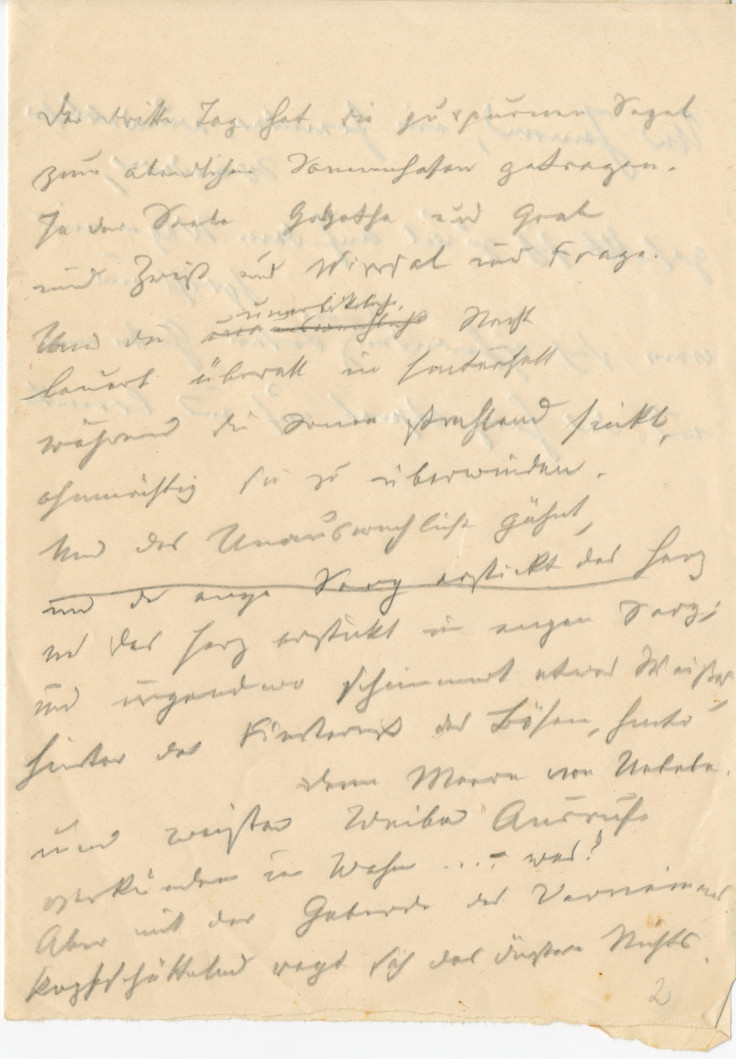 Der dritte Tag hat die purpurnen Segel
zum abendlichen Sonnenhafen getragen.
In der Seele Golgotha und Grab
und Zwist und Wirrsal und Frage.
unerbittliche
Und die Nacht
lauert überall im Hinterhalt
während die Sonne strahlend sinkt,
ohnmächtig sie zu überwinden.
Und das Unausweichliche gähnt,
und der enge Sarg erstickt das Herz
und das Herz erstickt im engen Sarg;
und irgendwo schimmert etwas Weißes
hinter der Finsternis des Bösen, hinter
dem Meere von Nebel.
und weißer Weiber Ausrufe
verkünden im Wahn ... – was?
Aber mit der Geberde des Verneinens
kopfschüttelnd regt sich das düstere Nichts.
2